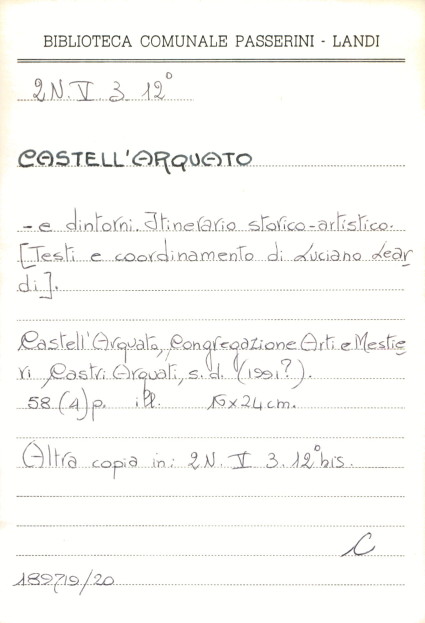 BIBLIOTECA COMUNALE PASSERINI - LANDI
2N. V. 3. 12°
CASTELL'ARQUATO
- e dintorni. Itinerario storico-artistico.
[Testi e coordinamento di Luciano Lear
di].
Castell'Arquato, Congregazione Arti e Mestie
ri Castri Arquati, s.d. (1991?).
58 (4) p. ill. 15x24 cm.
Altra copia in: 2N. V 3. 12° bis.
C
189719/20